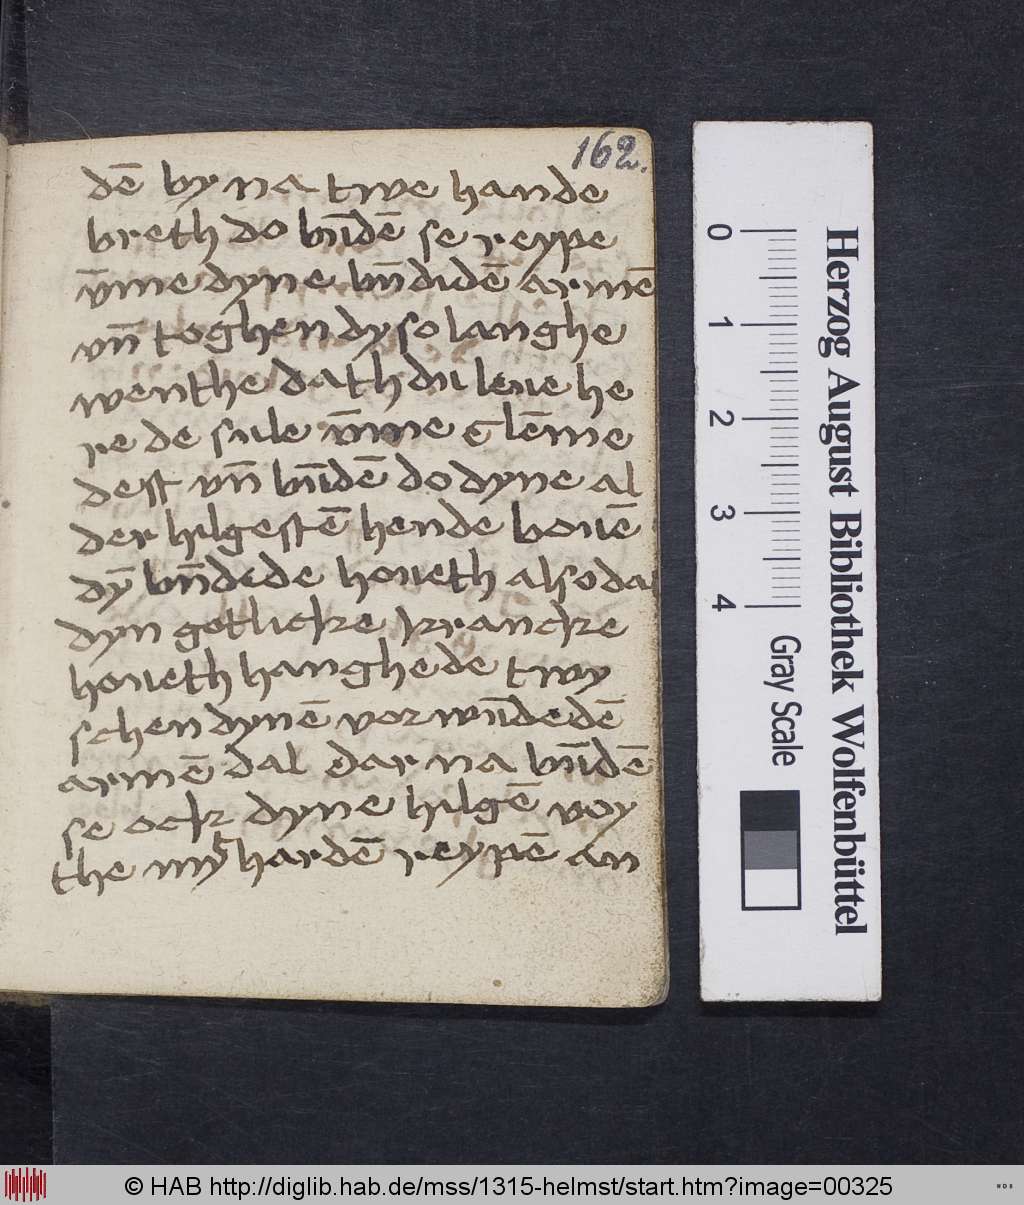 162.
dē by na twe hande
breth do bn̄dē se reype
v̄me dyne bn̄didē armē
vn̄ toghen dy so langhe
wenthe dath du leue he
re de sule v̄me lēme
dest vn̄ bn̄dē do dyne al
der hilgestē hende bouē
dȳ bn̄dede houeth also dat
dyn gotlicke krancke
houeth hanghede twy
schen dynē vorwn̄dedē
armē dal dar na bn̄dē
se ock dyne hilgē voy
the myt hardē reypē an
0 1 2 3 4
Gray Scale
Herzog August Bibliothek Wolfenbüttel
© HAB http://diglib.hab.de/mss/1315-helmst/start.htm?image=00325